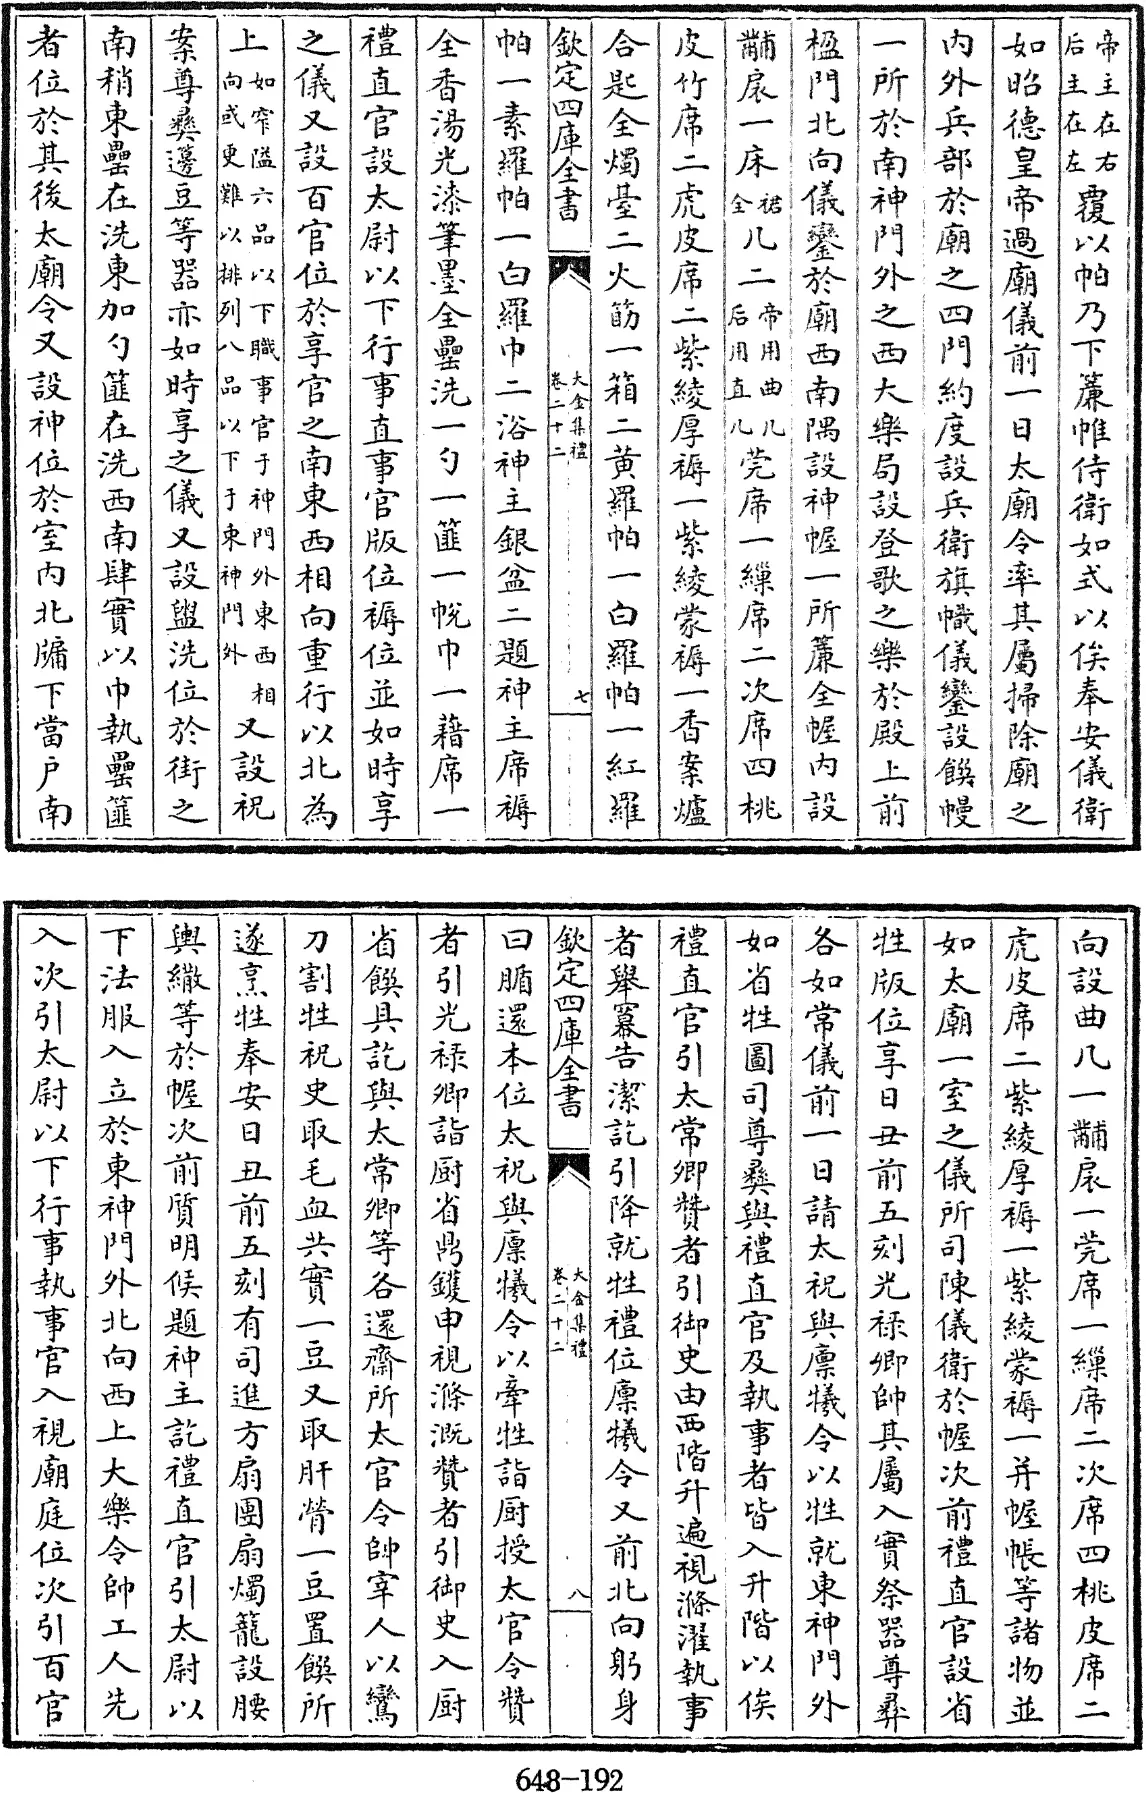 帝主在右后主在左覆以帕乃下簾帷侍衛如式以俟奉安儀衛
如昭德皇帝過廟儀前一日太廟令率其屬掃除廟之
内外兵部於廟之四門約度設兵衛旗幟儀鑾設饌幔
一所於南神門外之西大樂局設登歌之樂於殿上前
楹門北向儀鑾於廟西南隅設神幄一所簾全幄内設
黼扆一床裙全几二帝用曲几后用直几莞席一繅席二次席四桃
皮竹席二虎皮席二紫綾厚褥一紫綾蒙褥一香案爐
合匙全燭臺二火筯一箱二黄羅帕一白羅帕一紅羅
欽定四庫全書
大金集禮
卷二十二
七
帕一素羅帕一白羅巾二浴神主銀盆二題神主席褥
全香湯光漆筆墨全罍洗一勺一篚一帨巾一藉席一
禮直官設太尉以下行事直事官版位褥位並如時享
之儀又設百官位於享官之南東西相向重行以北為
上如窄隘六品以下職事官于神門外東西相向或更難以排列八品以下于東神門外又設祝
案尊彝籩豆等器亦如時享之儀又設盥洗位於街之
南稍東罍在洗東加勺篚在洗西南肆實以巾執罍篚
者位於其後太廟令又設神位於室内北牖下當户南
向設曲几一黼扆一莞席一繅席二次席四桃皮席二
虎皮席二紫綾厚褥一紫綾蒙褥一并幄帳等諸物並
如太廟一室之儀所司陳儀衛於幄次前禮直官設省
牲版位享日丑前五刻光禄卿帥其屬入實祭器尊彝
各如常儀前一日請太祝與廪犧令以牲就東神門外
如省牲圖司尊彝與禮直官及執事者皆入升階以俟
禮直官引太常卿贊者引御史由西階升遍視滌濯執事
者舉羃告潔訖引降就牲禮位廪犧令又前北向躬身
欽定四庫全書
大金集禮
卷二十二
八
曰腯還本位太祝與廪犧令以牽牲詣厨授太官令贊
者引光禄卿詣厨省鼎鑊申視滌溉贊者引御史入厨
省饌具訖與太常卿等各還齋所太官令帥宰人以鸞
刀割牲祝史取毛血共實一豆又取肝膋一豆置饌所
遂烹牲奉安日丑前五刻有司進方扇團扇燭籠設腰
輿繖等於幄次前質明候題神主訖禮直官引太尉以
下法服入立於東神門外北向西上大樂令帥工人先
入次引太尉以下行事執事官入視廟庭位次引百官
648-192